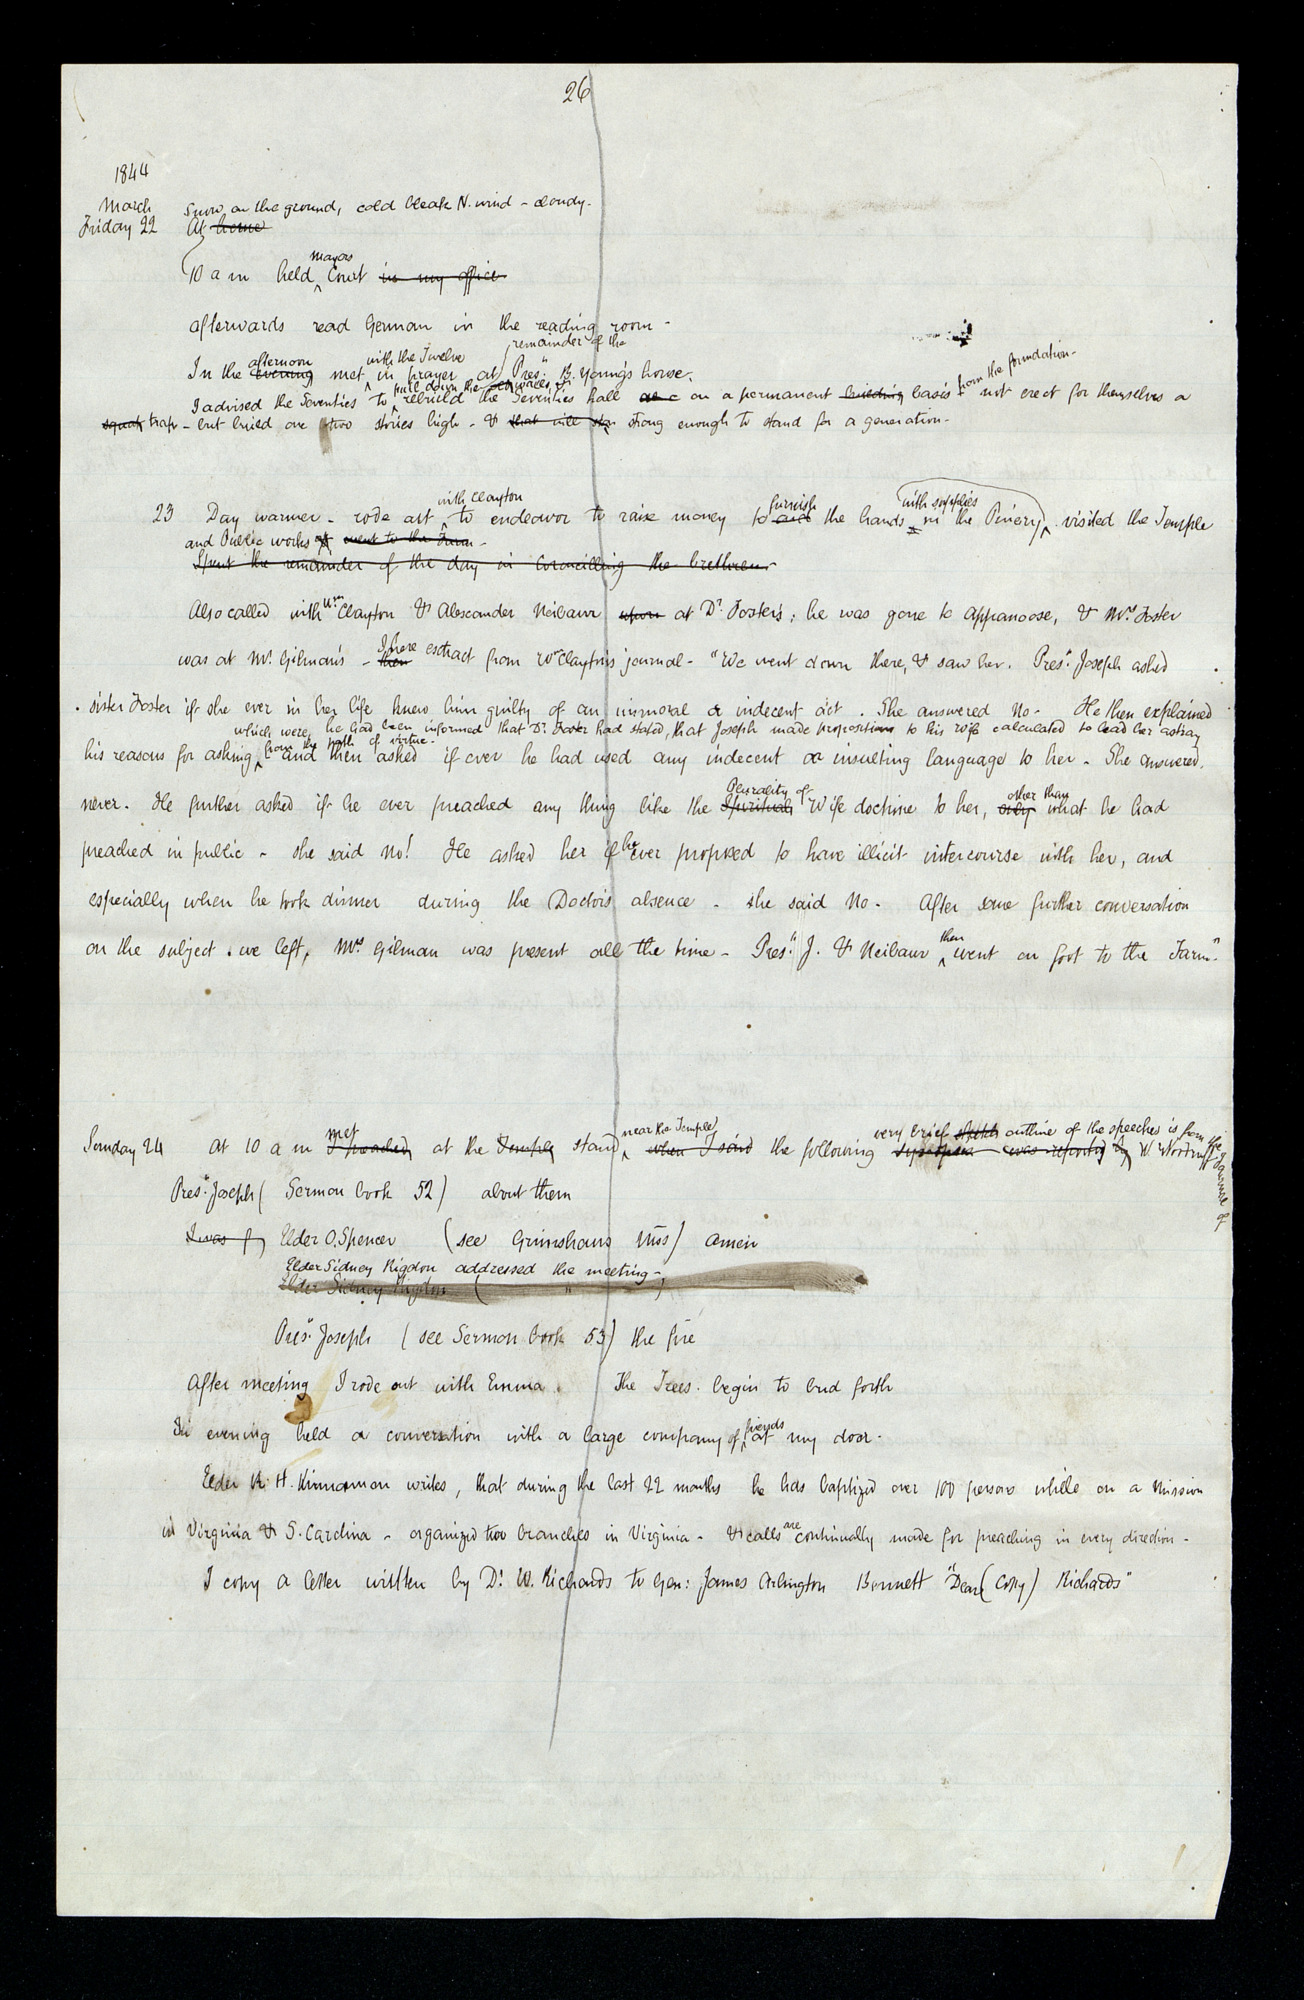 26
1844
March Snow on the ground, cold bleak N. wind - cloudy.
Friday 22 At home
10 a m held mayors Court in my office
afterwards read German in the reading room -
In the evening afternoon met with the Twelve in prayer at Prest. B. Young's house.
remainder of the
I advised the Seventies to pull down the walls rebuild the Seventies hall on a permanent building basis from the foundation - not erect for themselves a
squat trap - but build one two stories high - & that will stan strong enough to stand for a generation -
23 Day warmer - rode out with Clayton to endeavor to raise money to furnish the hands with supplies in the Pinery, visited the Temple
and Public works & went to the Farm -
Spent the remainder of the day in Councilling the brethren -
Also called with Wm Clayton & Alexander Neibaur upon at Dr. Foster's; he was gone to Appanoose, & Mrs Foster
was at Mr. Gilman's - then I here extract from Wm Clayton's journal - "We went down there, & saw her. Prest. Joseph asked
sister Foster if she ever in her life knew him guilty of an immoral or indecent act. She answered No - He then explained
which were, he had been informed that Dr. Foster had stated, that Joseph made propositions to his wife calculated to lead her astray
from the path of virtue -
his reasons for asking, and then asked if ever he had used any indecent or insulting language to her - She answered,
never. He further asked if he ever preached any thing like the Spiritual Plurality of Wife doctrine to her, only other than what he had
preached in public - she said no! He asked her if he ever proposed to have illicit intercourse with her, and
especially when he took dinner during the Doctor's absence - she said No - After some further conversation
on the subject. we left, Mrs Gilman was present all the time - Prest. J. & Neibaur then went on foot to the Farm."
Sunday 24 At 10 a m I preached met at the Temple stand near the Temple when I said the following synopsis was reported by very brief sketch outline of the speeches is from the Journal of W. Woodruff
Prest. Joseph ( Sermon book 52) about them
I was f Elder O. Spencer (see Grimshaws Mss) amen
Elder Sidney Rigdon addressed the meeting -
Elder Sidney Rigdon ( " )
Prest. Joseph (see Sermon book 53) the fire
After meeting I rode out with Emma. The Trees. begin to bud forth
In evening held a conversation with a large company of friends at my door.
Elder R. H. Kinnamon writes, that during the last 22 months he has baptized over 100 persons while on a mission
in Virginia & S. Carolina - organized two branches in Virginia - & calls are continually made for preaching in every direction -
I copy a letter written by Dr. W. Richards to Gen: James Arlington Bennett "Dear (copy) Richards"